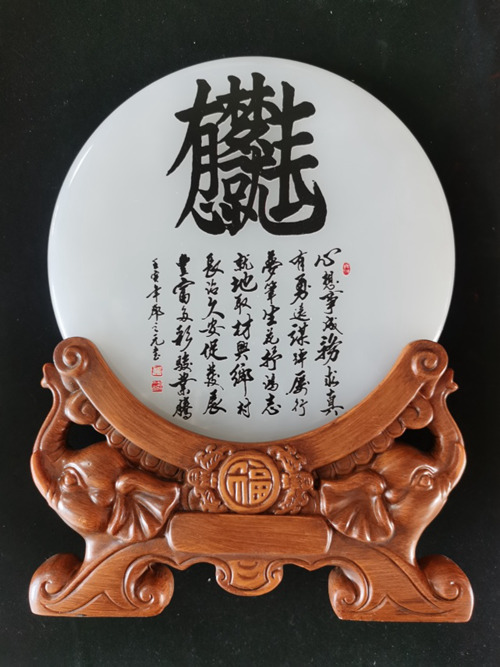 心想事成務求真
有勇遠謀踔厲行
夢筆生花抒鴻志
就地取材興鄉村
長治久安促發展
豐富多彩駿業騰
壬寅年廖三元書
福